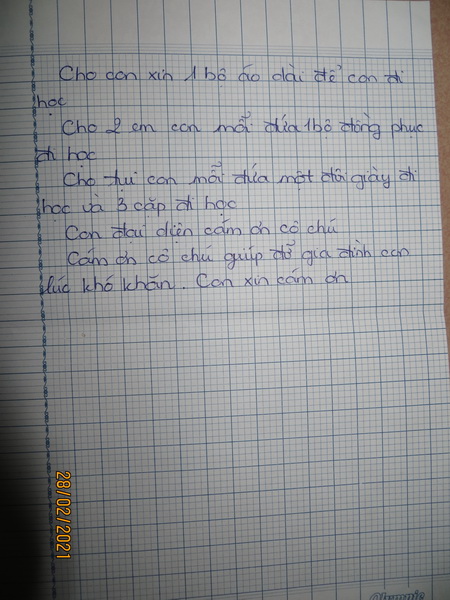 Cho con xin 1 bộ áo dài để con đi
học
Cho 2 em con mỗi đứa 1 bộ đồng phục
đi học
Cho tụi con mỗi đứa một đôi giày đi
học và 3 cặp đi học
Con đại diện cám ơn cô chú
Cám ơn cô chú giúp đỡ gia đình con
lúc khó khăn. Con xin cám ơn
28/02/2021
Olympic